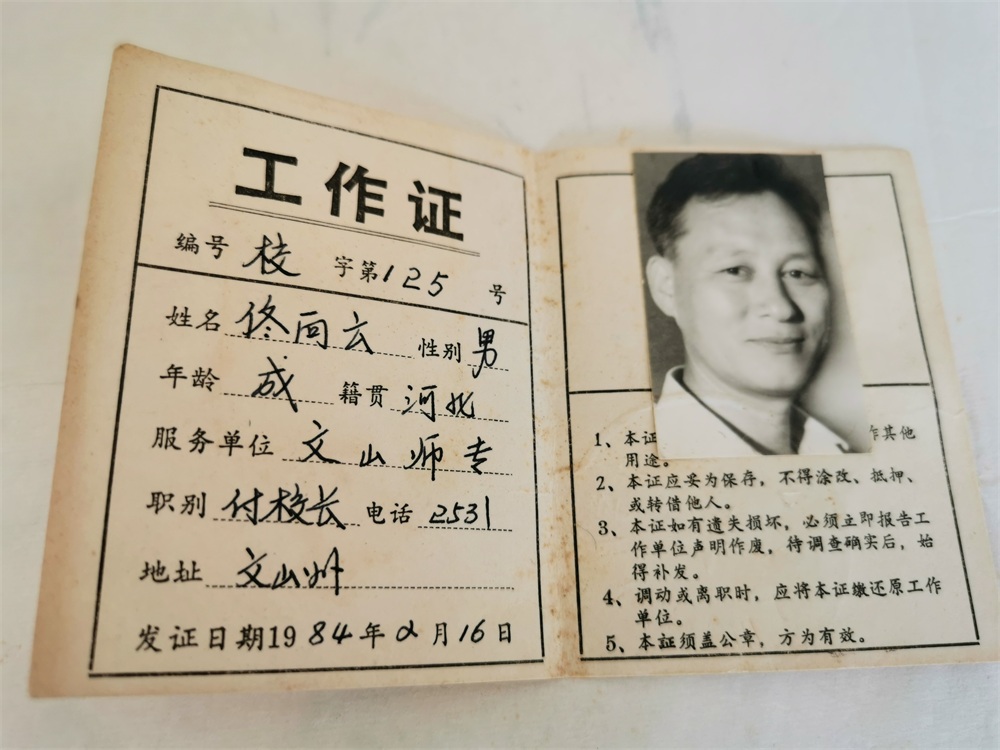 工作证
编号 校 字第125 号
姓名 佟向云 性别 男
年龄 成 籍贯 河北
服务单位 文山师专
职别 付校长 电话 2531
地址 文山州
发证日期1984年2月16日
1、本证 作其他
用途。
2、本证应妥为保存，不得涂改、抵押、
或转借他人。
3、本证如有遗失损坏，必须立即报告工
作单位声明作废，待调查确实后，始
得补发。
4、调动或离职时，应将本证缴还原工作
单位。
5、本証须盖公章，方为有效。